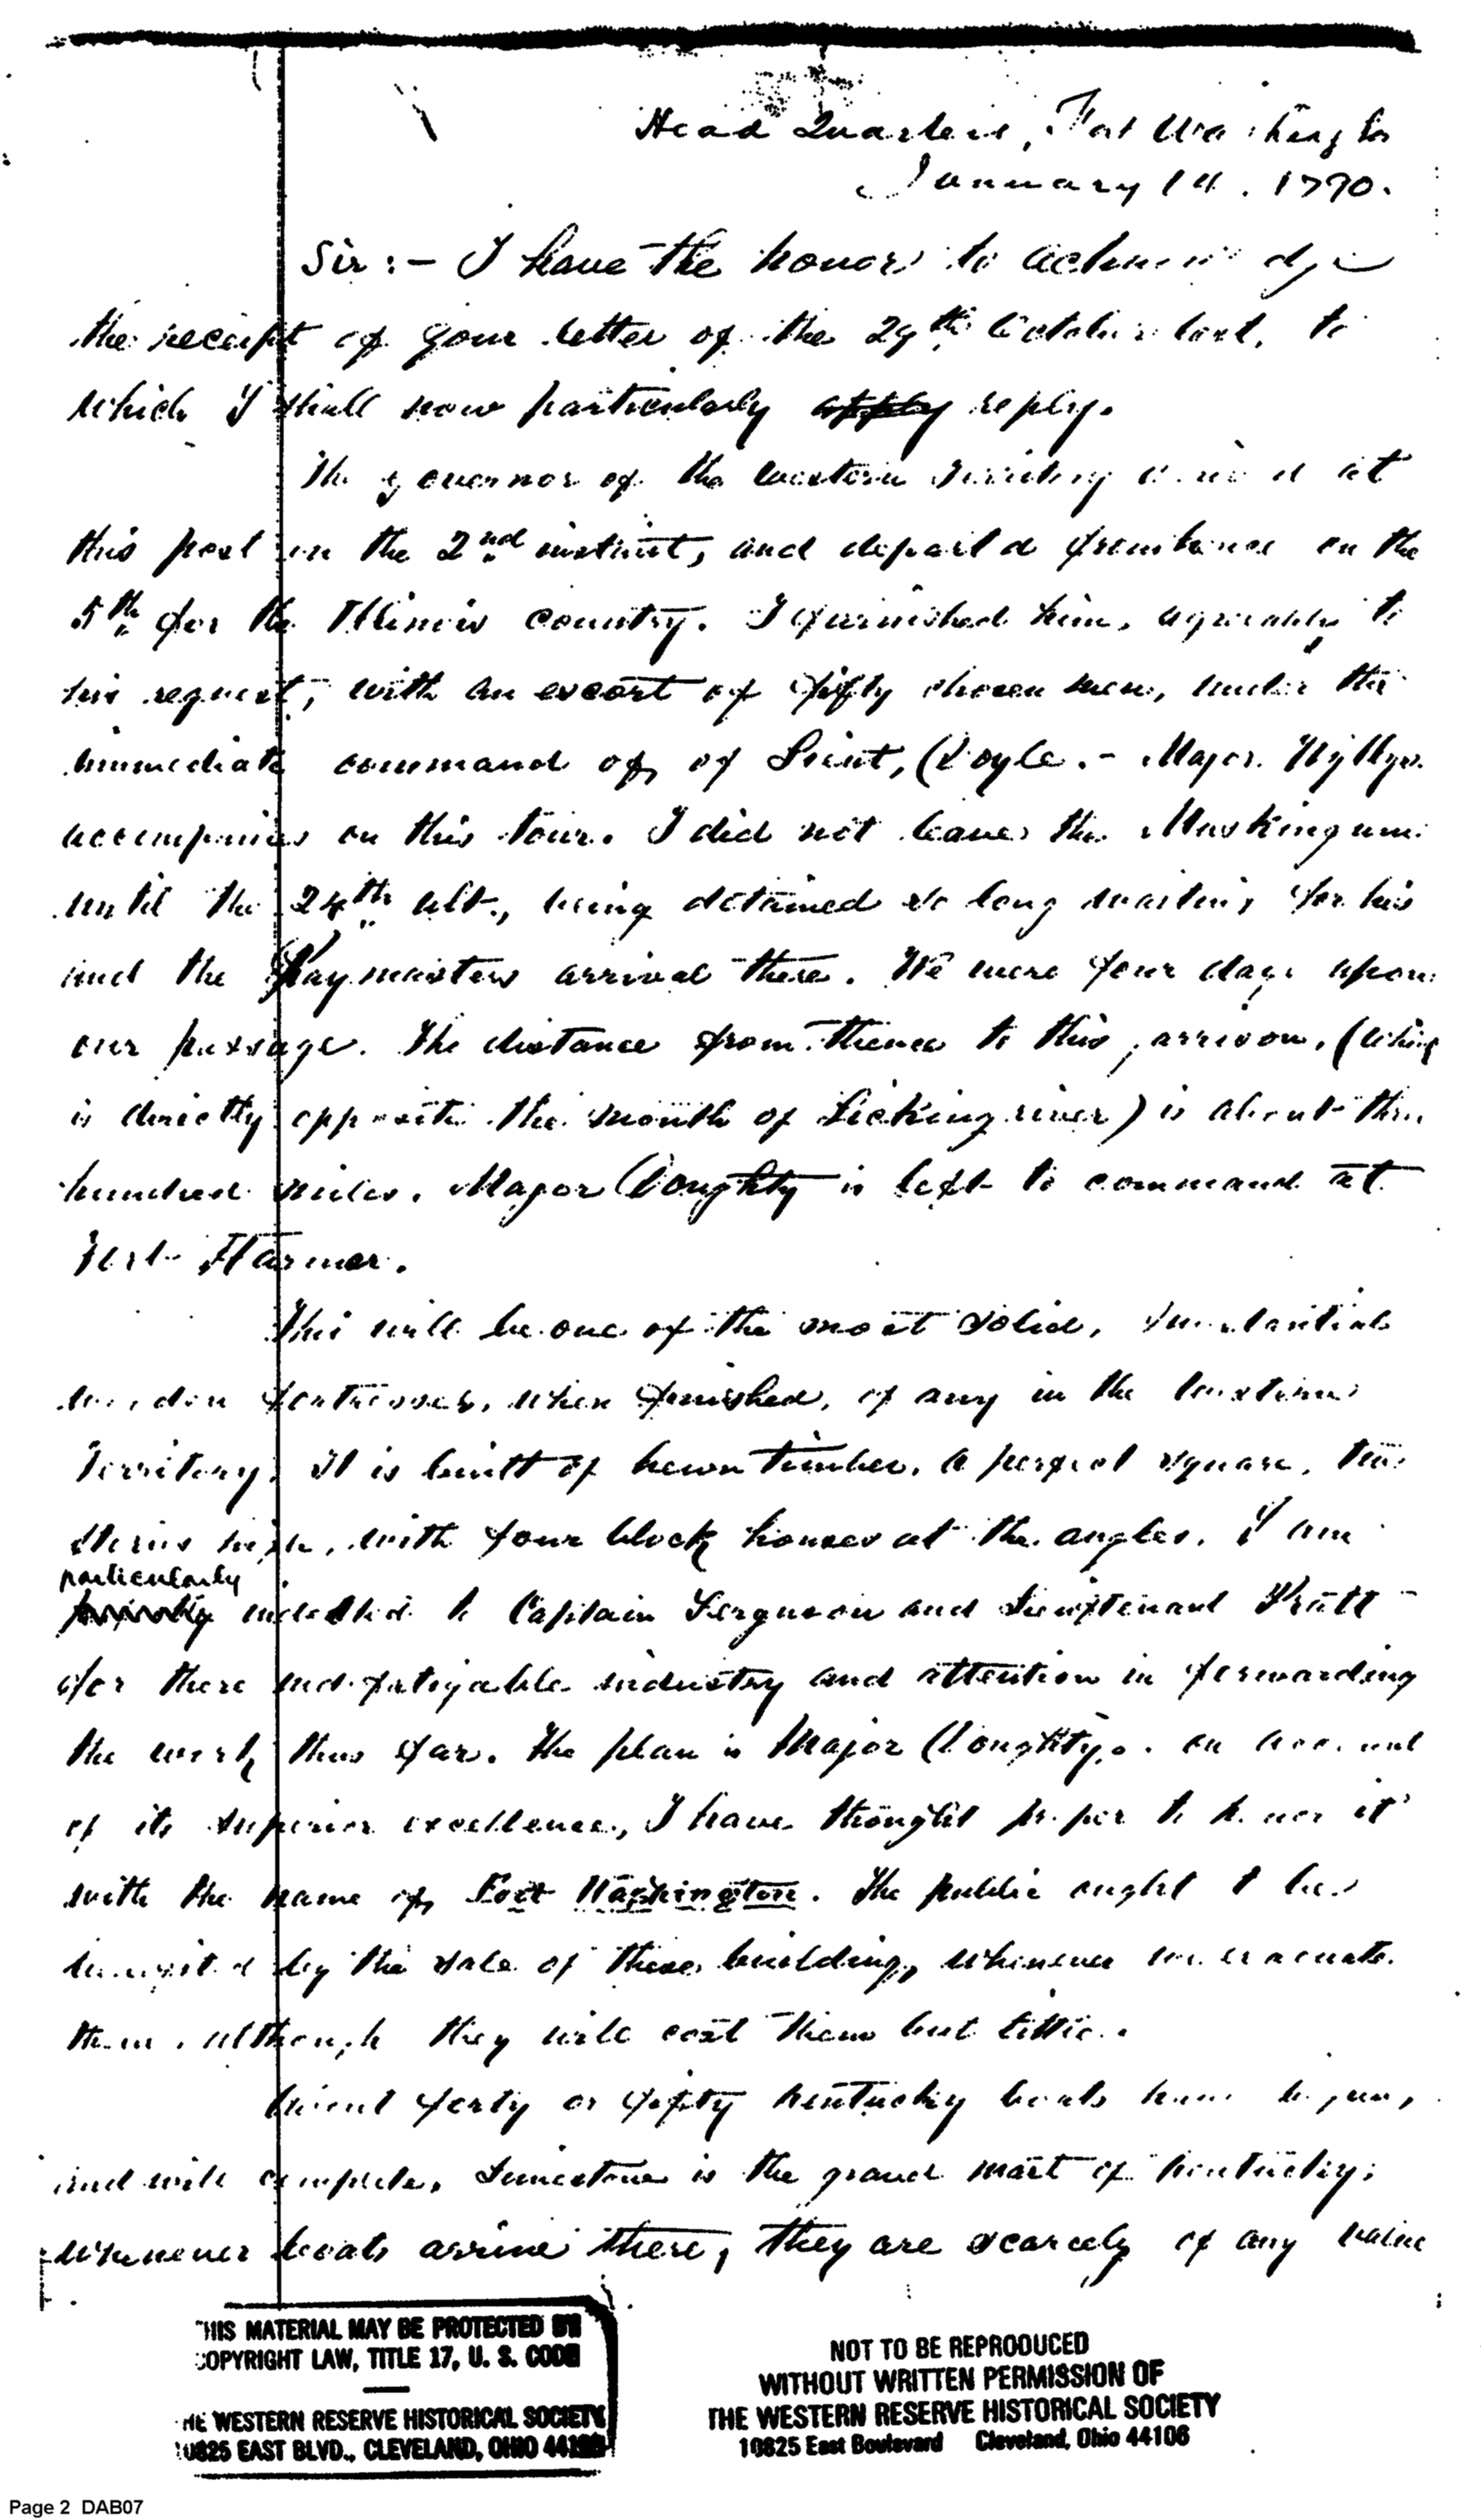 Head Quarters, Fort Washington
January 14. 1790.
Sir:- I have the honor to acknowledge
the receipt of your letter of the 29th October last, to
which I shall now particularly apply reply.
The governor of the western Territory arrived at
this post on the 2nd instant, and departed from hence on the
5th for the Illinois country. I furnished him, agreeably to
his request, with an escort of fifty chosen men, under the
immediate command of, of Lieut, Doyle. - Major Wyllys
accompanies on this tour. I did not leave the Muskingum
until the 24th ult., being detained so long waiting for his
and the Paymasters arrival there. We were four days upon
our passage. The distance from thence to this garrison, (which
is directly opposite the mouth of Licking river) is about three
hundred miles. Major Doughty is left to command at
Fort Harmar.
This will be one of the most solid, substantial
wooden fortresses, when finished, of any in the western
Territory. It is built of hewn timber, a perfect square, two
stories high, with four block houses at the angles. I am
particularly
indebted to Captain Ferguson and Lieutenant Pratt -
for there indefatigable industry and attention in forwarding
the work thus far. The plan is Major Doughty's. on account
of its superior excellence, I have thought proper to honor it
with the name of, Fort Washington. The public ought to be
benefited by the sale of these building, whenever we evacuate
them, although they will cost them but little.
About forty or fifty Kentucky boats have begun,
and will complete, Limestone is the grand mart of Kentucky;
whenever boats arrive there, they are scarcely of any value
THIS MATERIAL MAY BE PROTECTED BY
COPYRIGHT LAW, TITLE 17, U. S. CODE
THE WESTERN RESERVE HISTORICAL SOCIETY
10825 EAST BLVD., CLEVELAND, OHIO 44106
NOT TO BE REPRODUCED
WITHOUT WRITTEN PERMISSION OF
THE WESTERN RESERVE HISTORICAL SOCIETY
10825 East Boulevard Cleveland, Ohio 44106
Page 2 DAB07